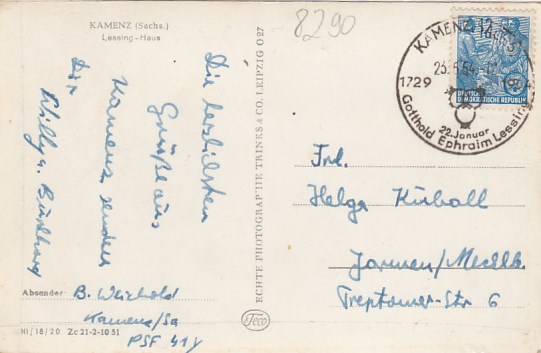 KAMENZ (Sachs.)
Lessing-Haus
8290
Die herzlichsten
Grüße aus
Kamenz senden
Dir
Willy u. Burkhard
Absender:
B. Weichold
Kamenz/Sa
PSF 414
III/18/20 Zc 21-2-10 51
ECHTE PHOTOGRAPHIE TRINKS & CO. LEIPZIG O 27
Teco
KAMENZ
1729
22. Januar
Gotthold Ephraim Lessing
12
DEUTSCHE
DEMOKRATISCHE REPUBLIK
Frl.
Helga Kuball
Jarmen/Mecklb.
Treptower-Str 6